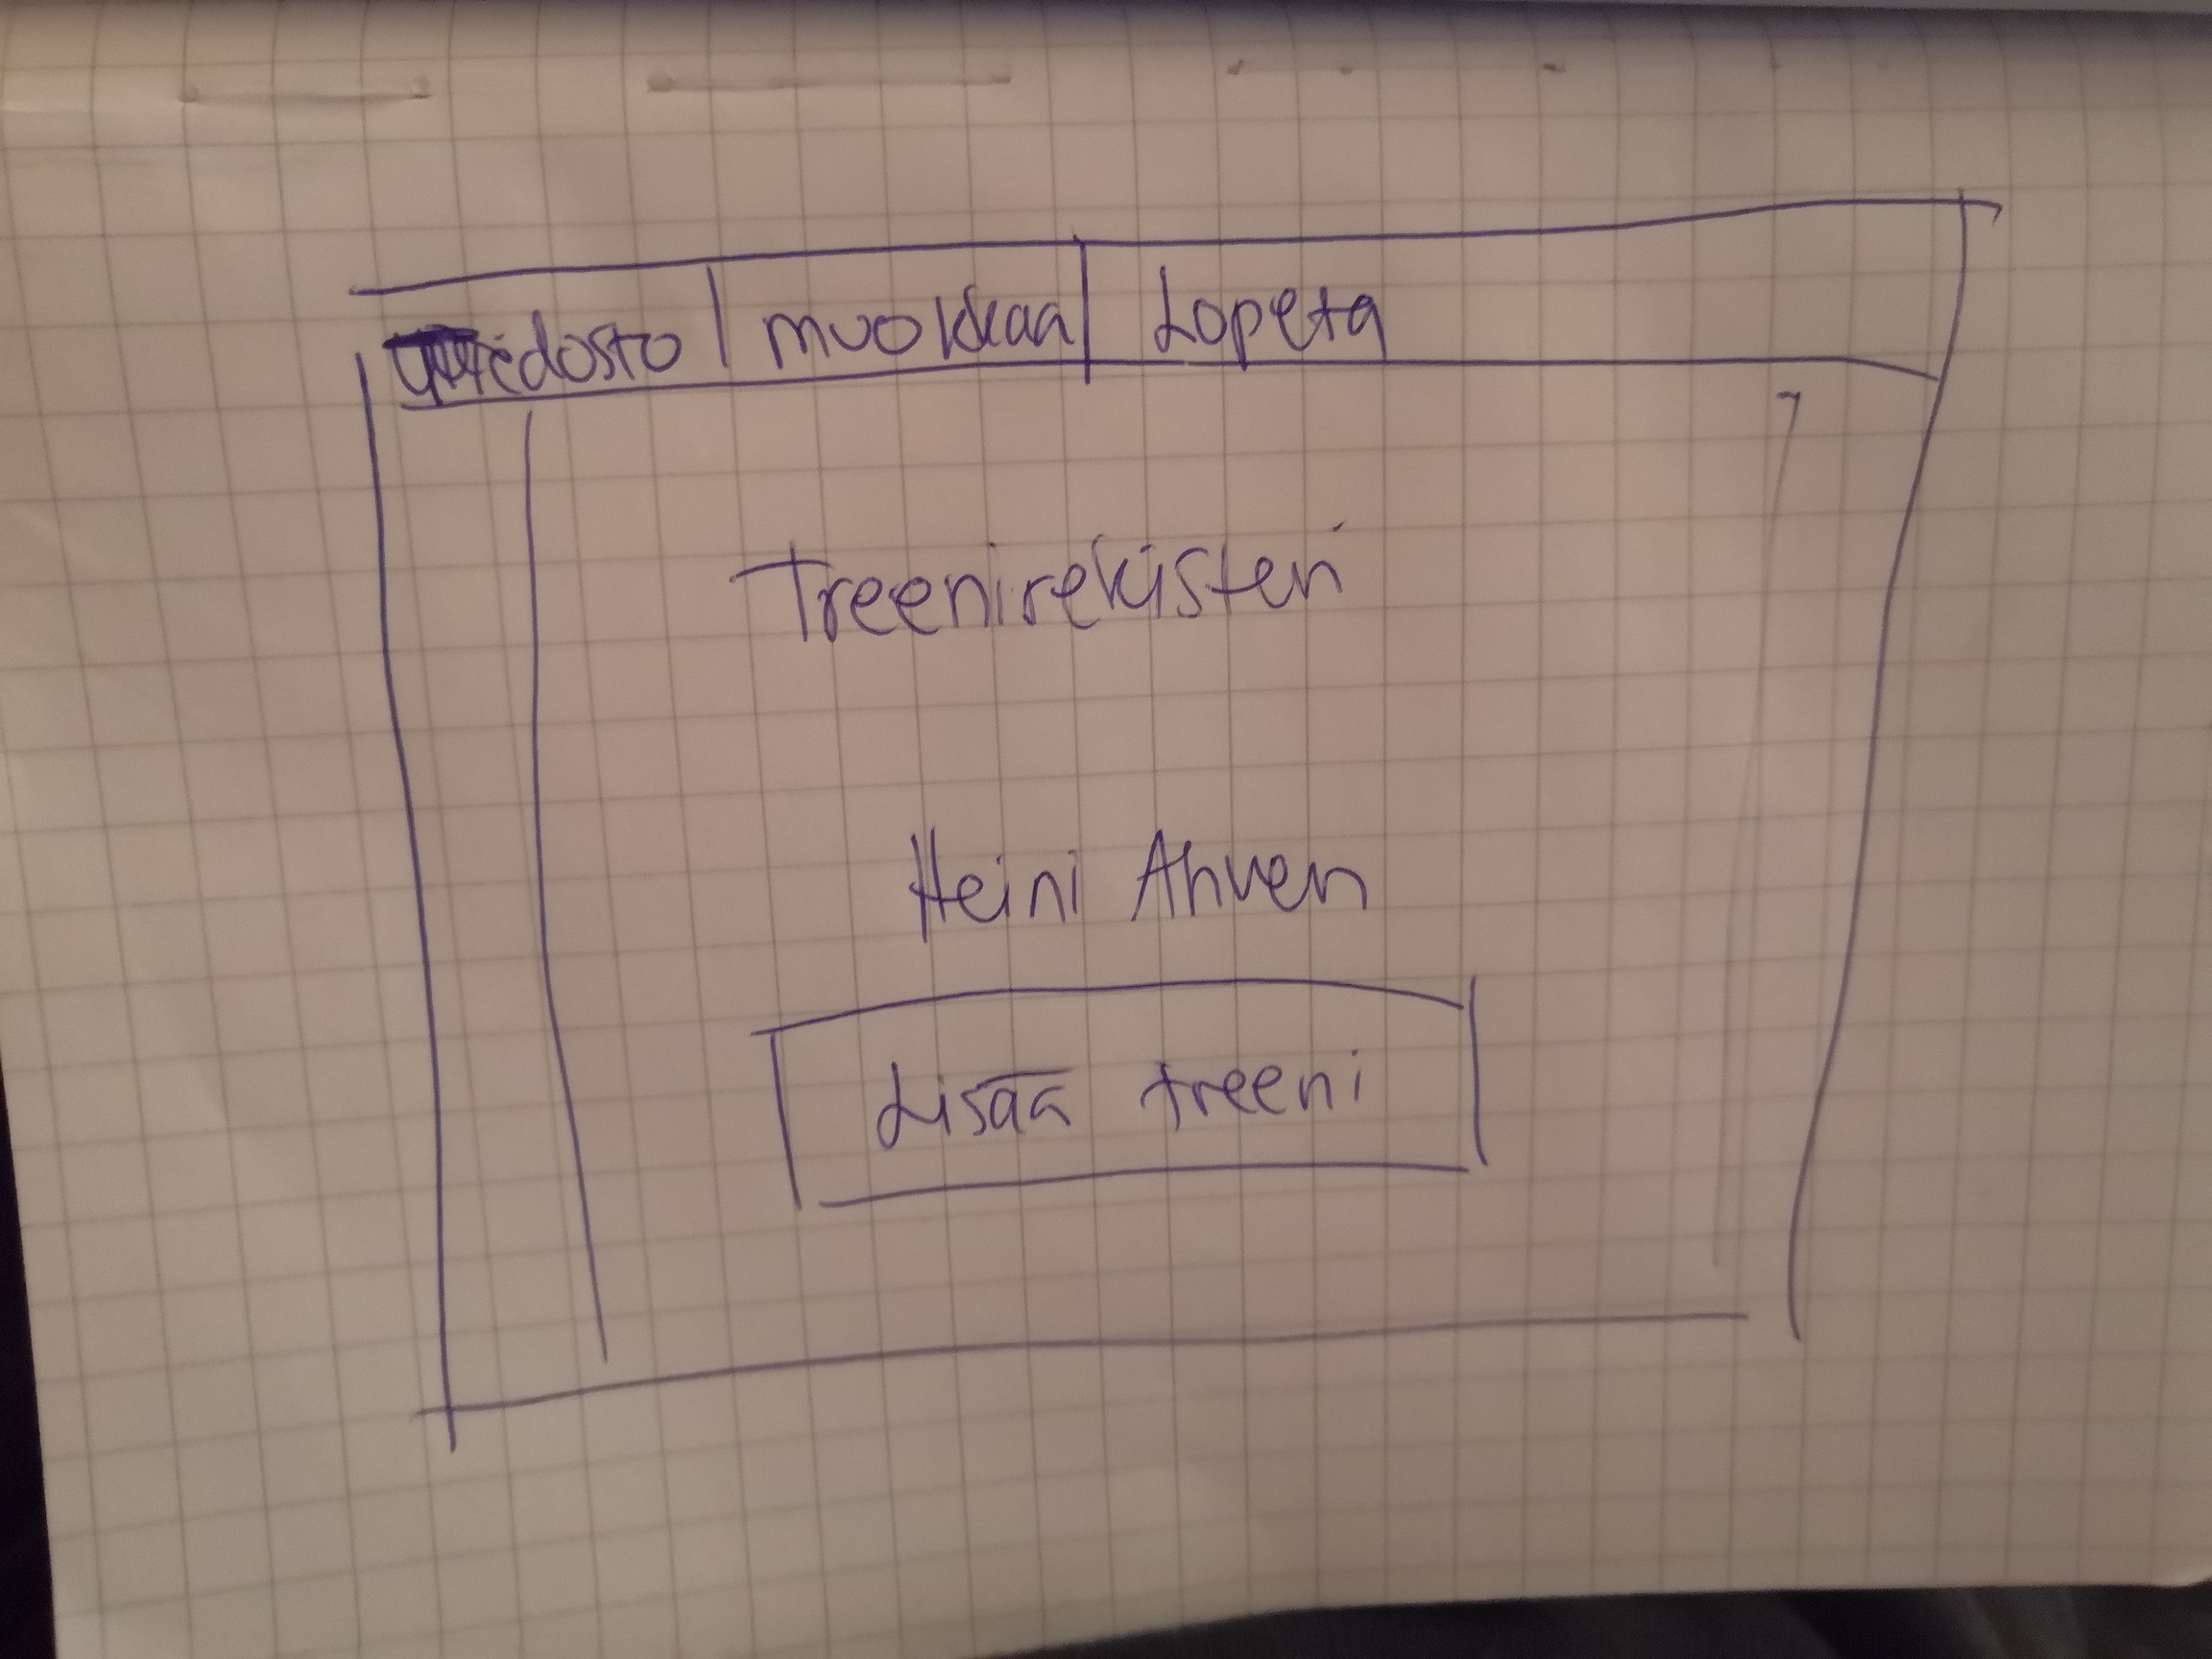 Tiedosto | muokkaa | Lopeta
Treenirekisteri
Heini Ahven
Lisää treeni